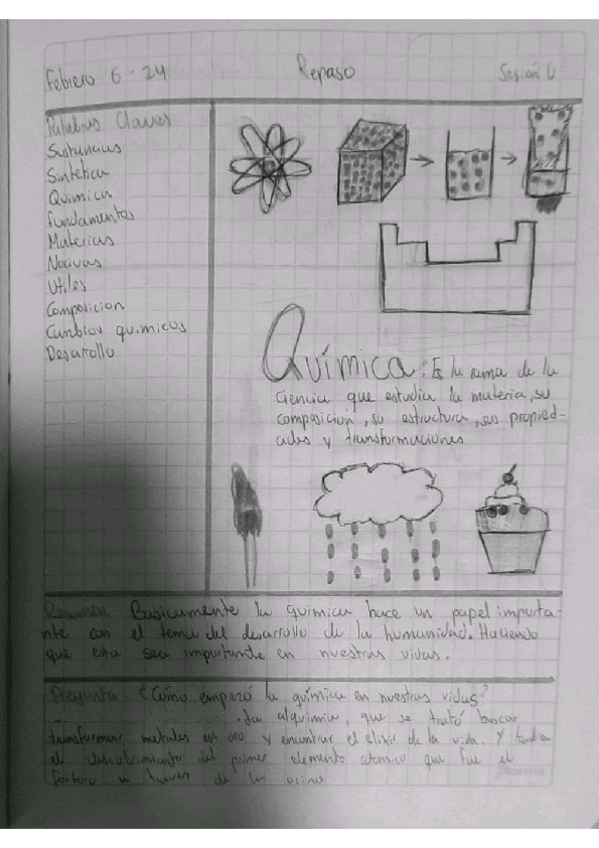 Febrero 6-24
Repaso
Sesión 6
Palabras Claves
Sustancias
Sintetica
Química
Fundamentos
Materias
Nocivas
Utiles
Composicion
Cambios quimicos
Desarrollo
Química: Es la rama de la
ciencia que estudia la materia, su
composicion, su estructura, sus propied-
ades y transformaciones
Resumen: Basicamente la química hace un papel importa-
nte con el tema del desarrollo de la humanidad. Haciendo
que esta sea importante en nuestras vidas.
Pregunta: ¿Cómo empezó la química en nuestras vidas?
alquimia, que se trató buscar
transformar metales en oro y encontrar el elixir de la vida. Y
el descubrimiento del primer elemento atomico que fue el
de la
Norma